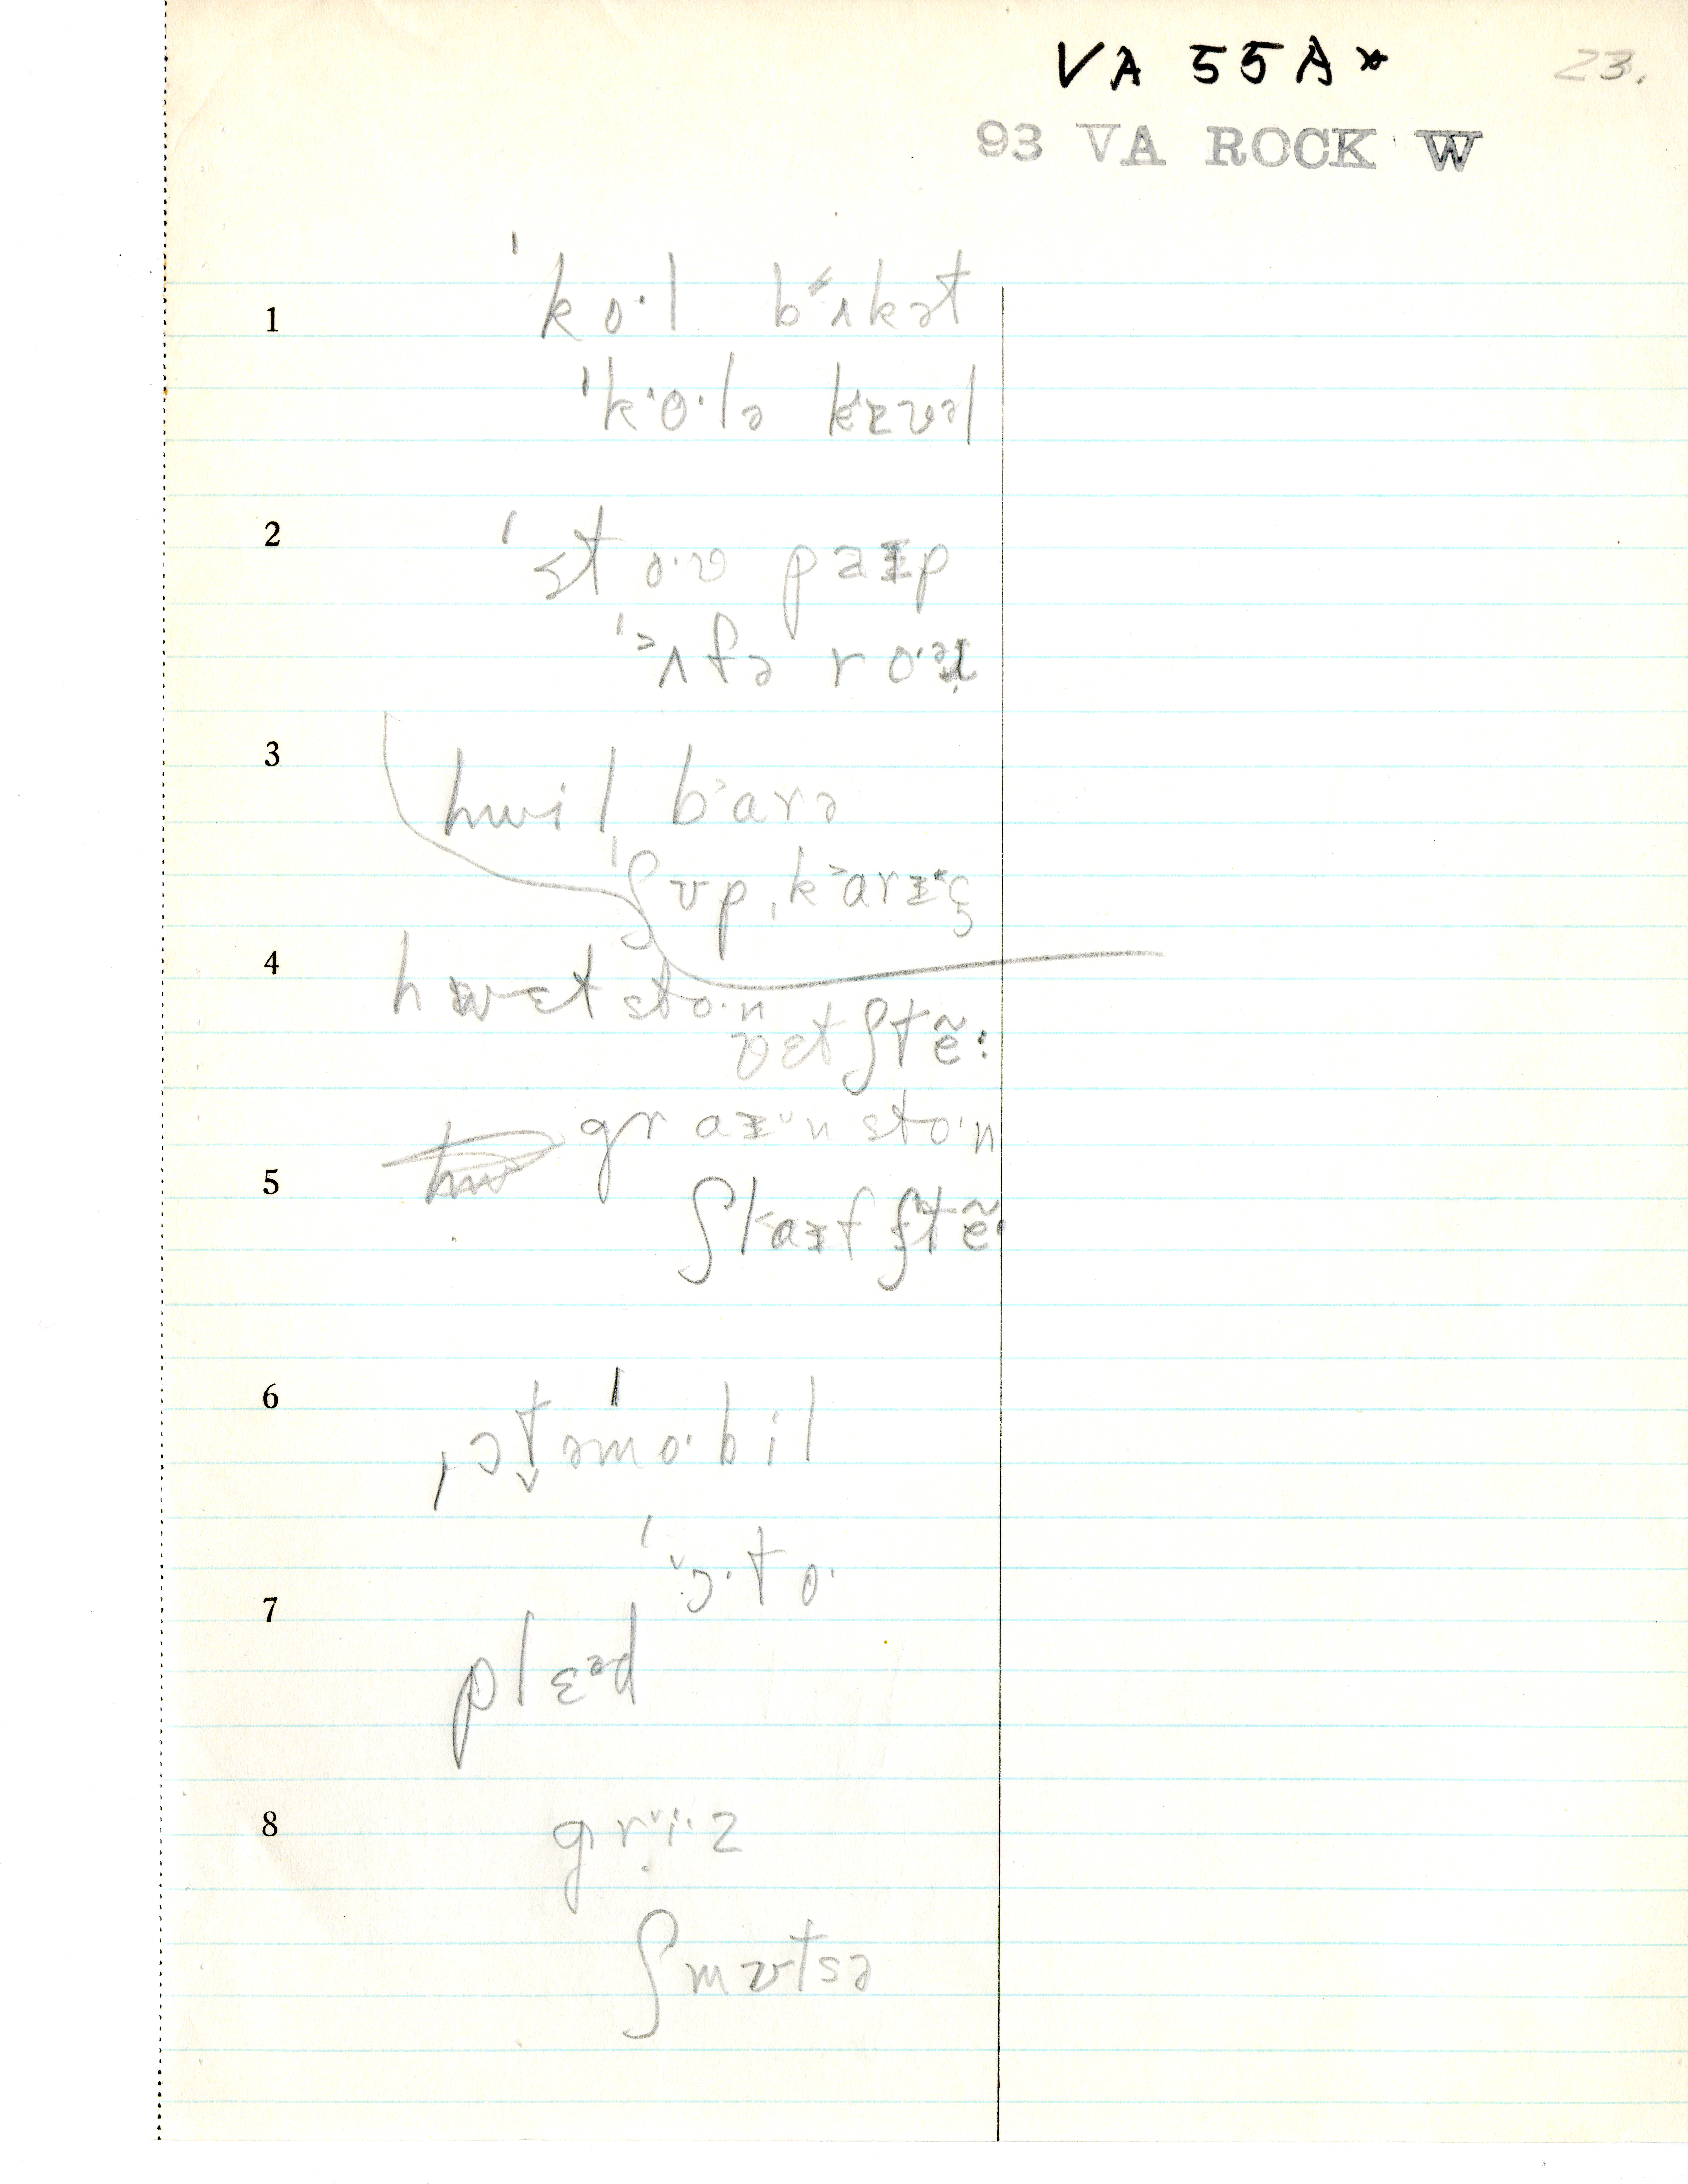 VA 55A* 23.
93 VA ROCK W
1 ˈko·l bʌkət
ˈk‘o·lə kɪvəl
2 ˈsto·ʊ paɪp
ˈʌfə ro·ər
3 hwil b‘arə
ˈʃʊpˌk‘arɪç
4 hwɛt sto·n
vɛtʃtẽ:
graɪn sto·n
5 ʃlaɪfʃtẽ·
6 ˌɔtəˈmo·bil
ˈɔ·to·
7 plɛəd
8 gri·z
ʃmʊtsə